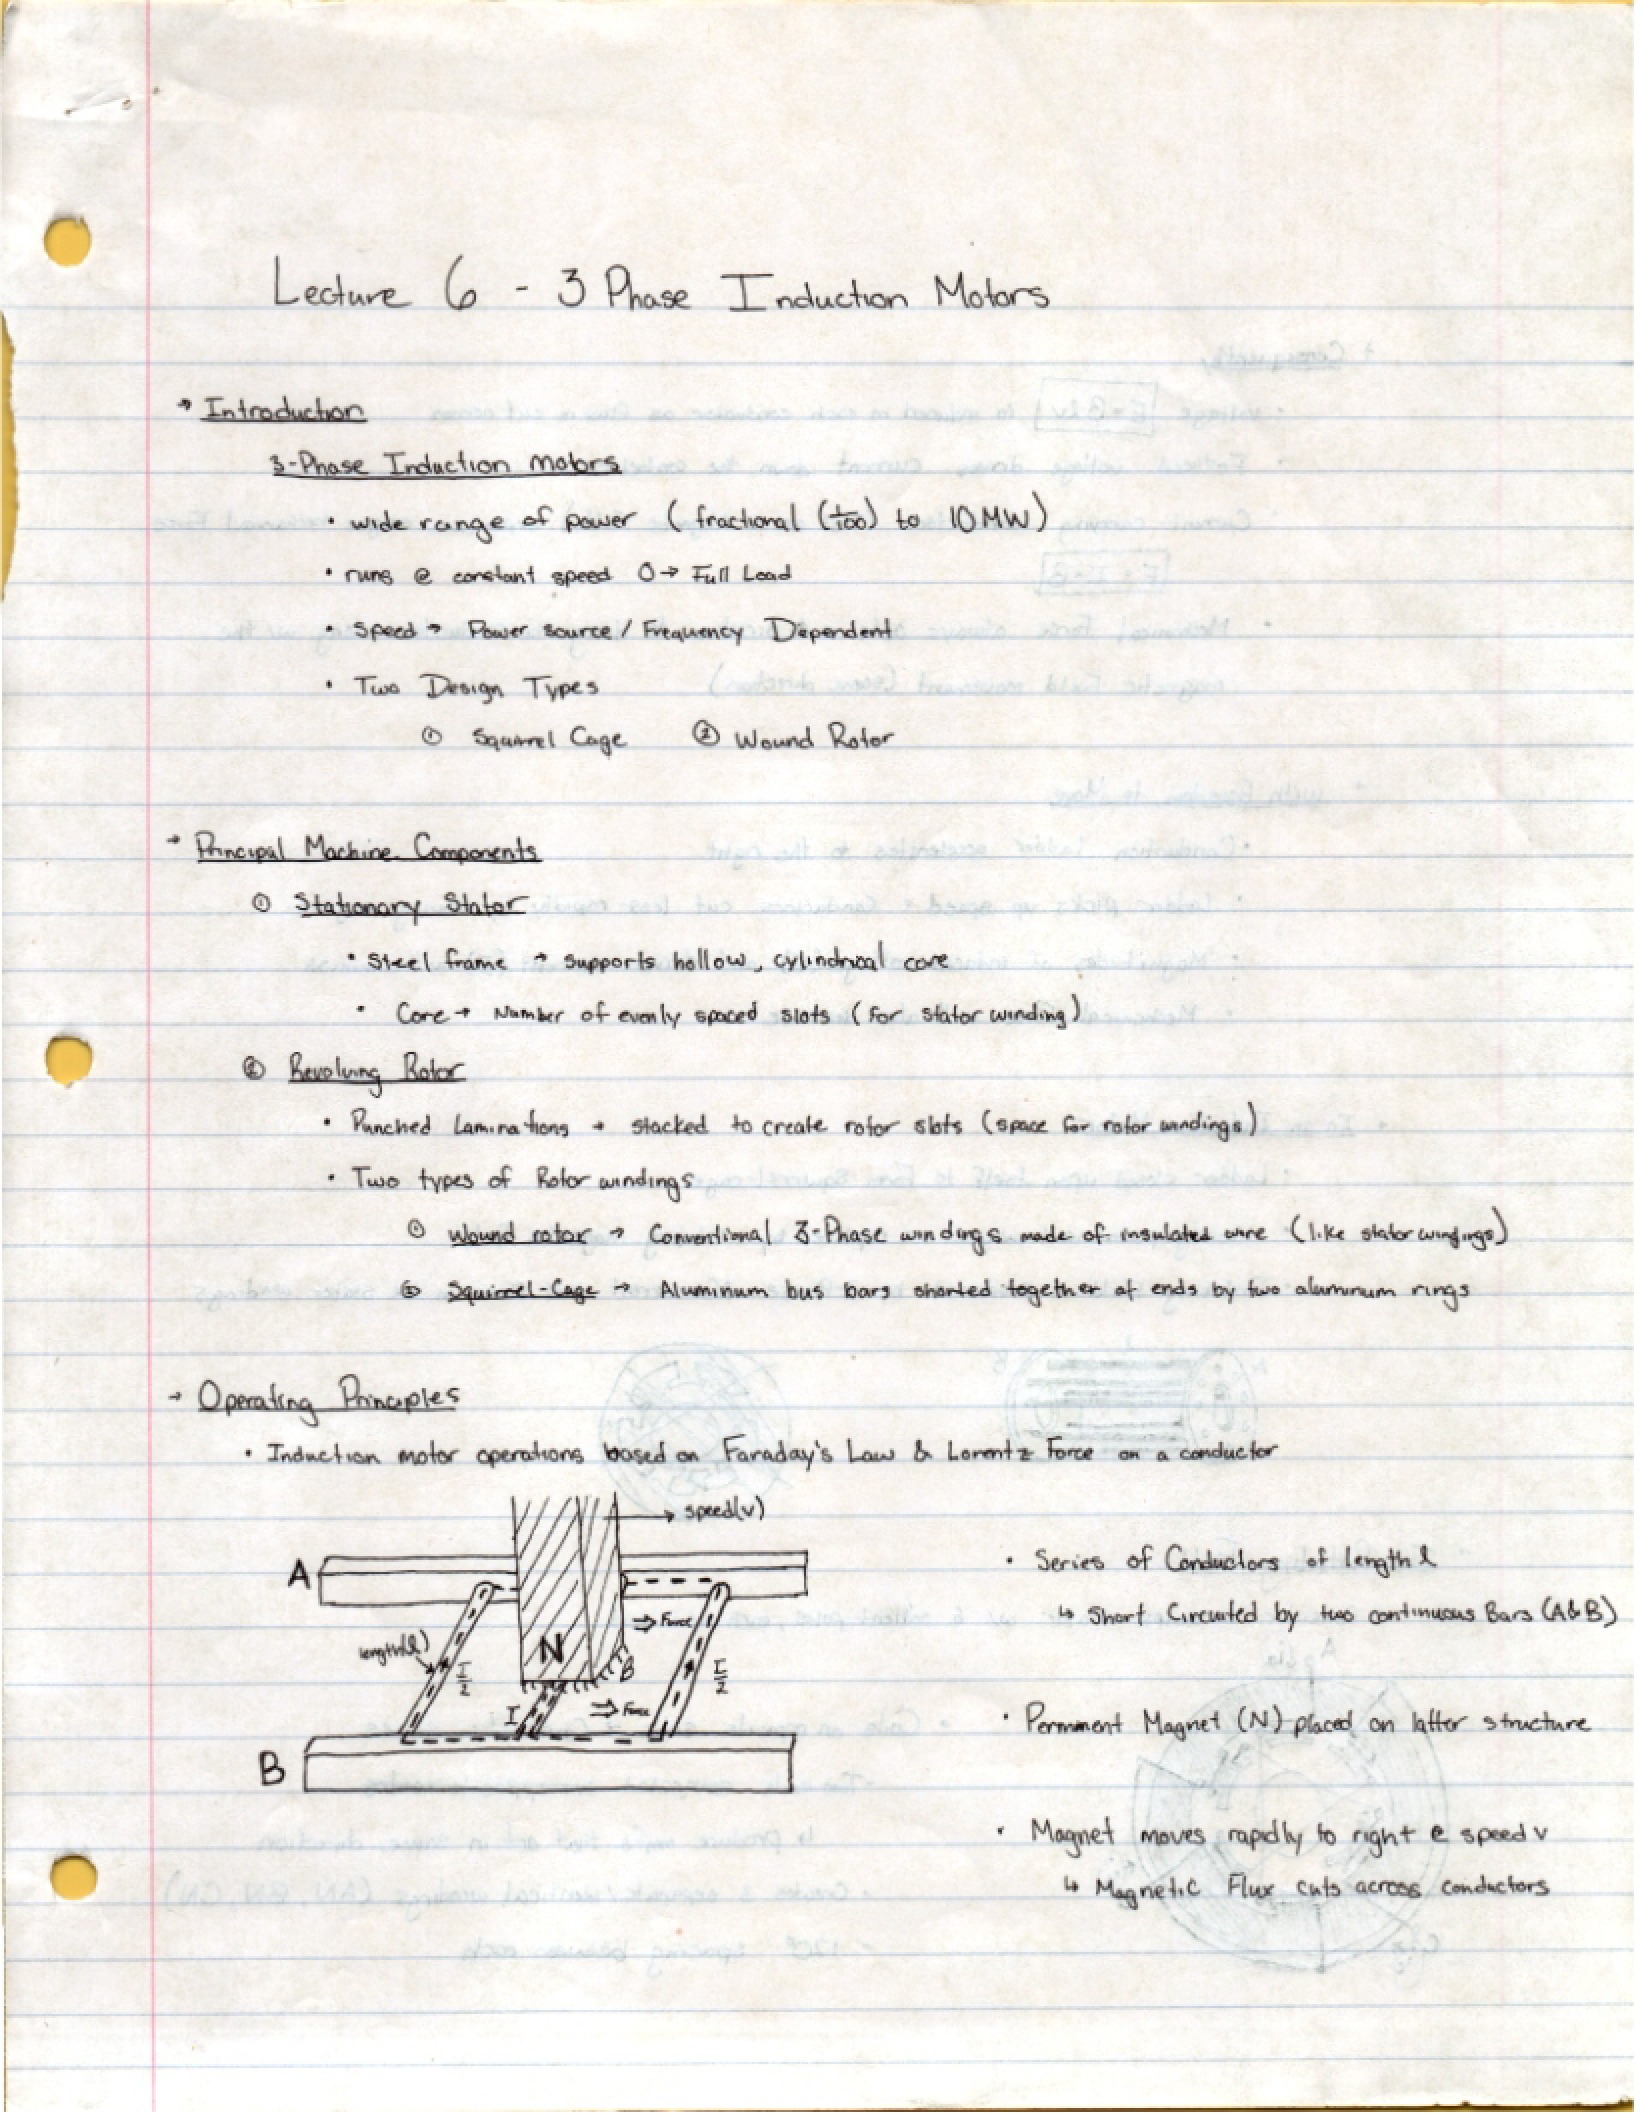 Lecture 6 - 3 Phase Induction Motors
→ Introduction
3-Phase Induction Motors
• wide range of power (fractional (1/100) to 10 MW)
• runs @ constant speed 0 → Full Load
• Speed → Power source / Frequency Dependent
• Two Design Types
① Squirrel Cage ② Wound Rotor
→ Principal Machine Components
① Stationary Stator
• Steel frame → supports hollow, cylindrical core
• Core → Number of evenly spaced slots (for stator winding)
② Revolving Rotor
• Punched Laminations → stacked to create rotor slots (space for rotor windings)
• Two types of Rotor windings
① Wound rotor → Conventional 3-Phase windings made of insulated wire (like stator windings)
② Squirrel-Cage → Aluminum bus bars shorted together at ends by two aluminum rings
→ Operating Principles
• Induction motor operations based on Faraday's Law & Lorentz Force on a conductor
→ speed(v)
A
• Series of Conductors of length l
↳ Short Circuited by two continuous Bars (A&B)
⇒ Force
length(l)
N
B
I/2
I/2
I
⇒ Force
• Perminent Magnet (N) placed on latter structure
B
• Magnet moves rapidly to right @ speed v
↳ Magnetic Flux cuts across conductors